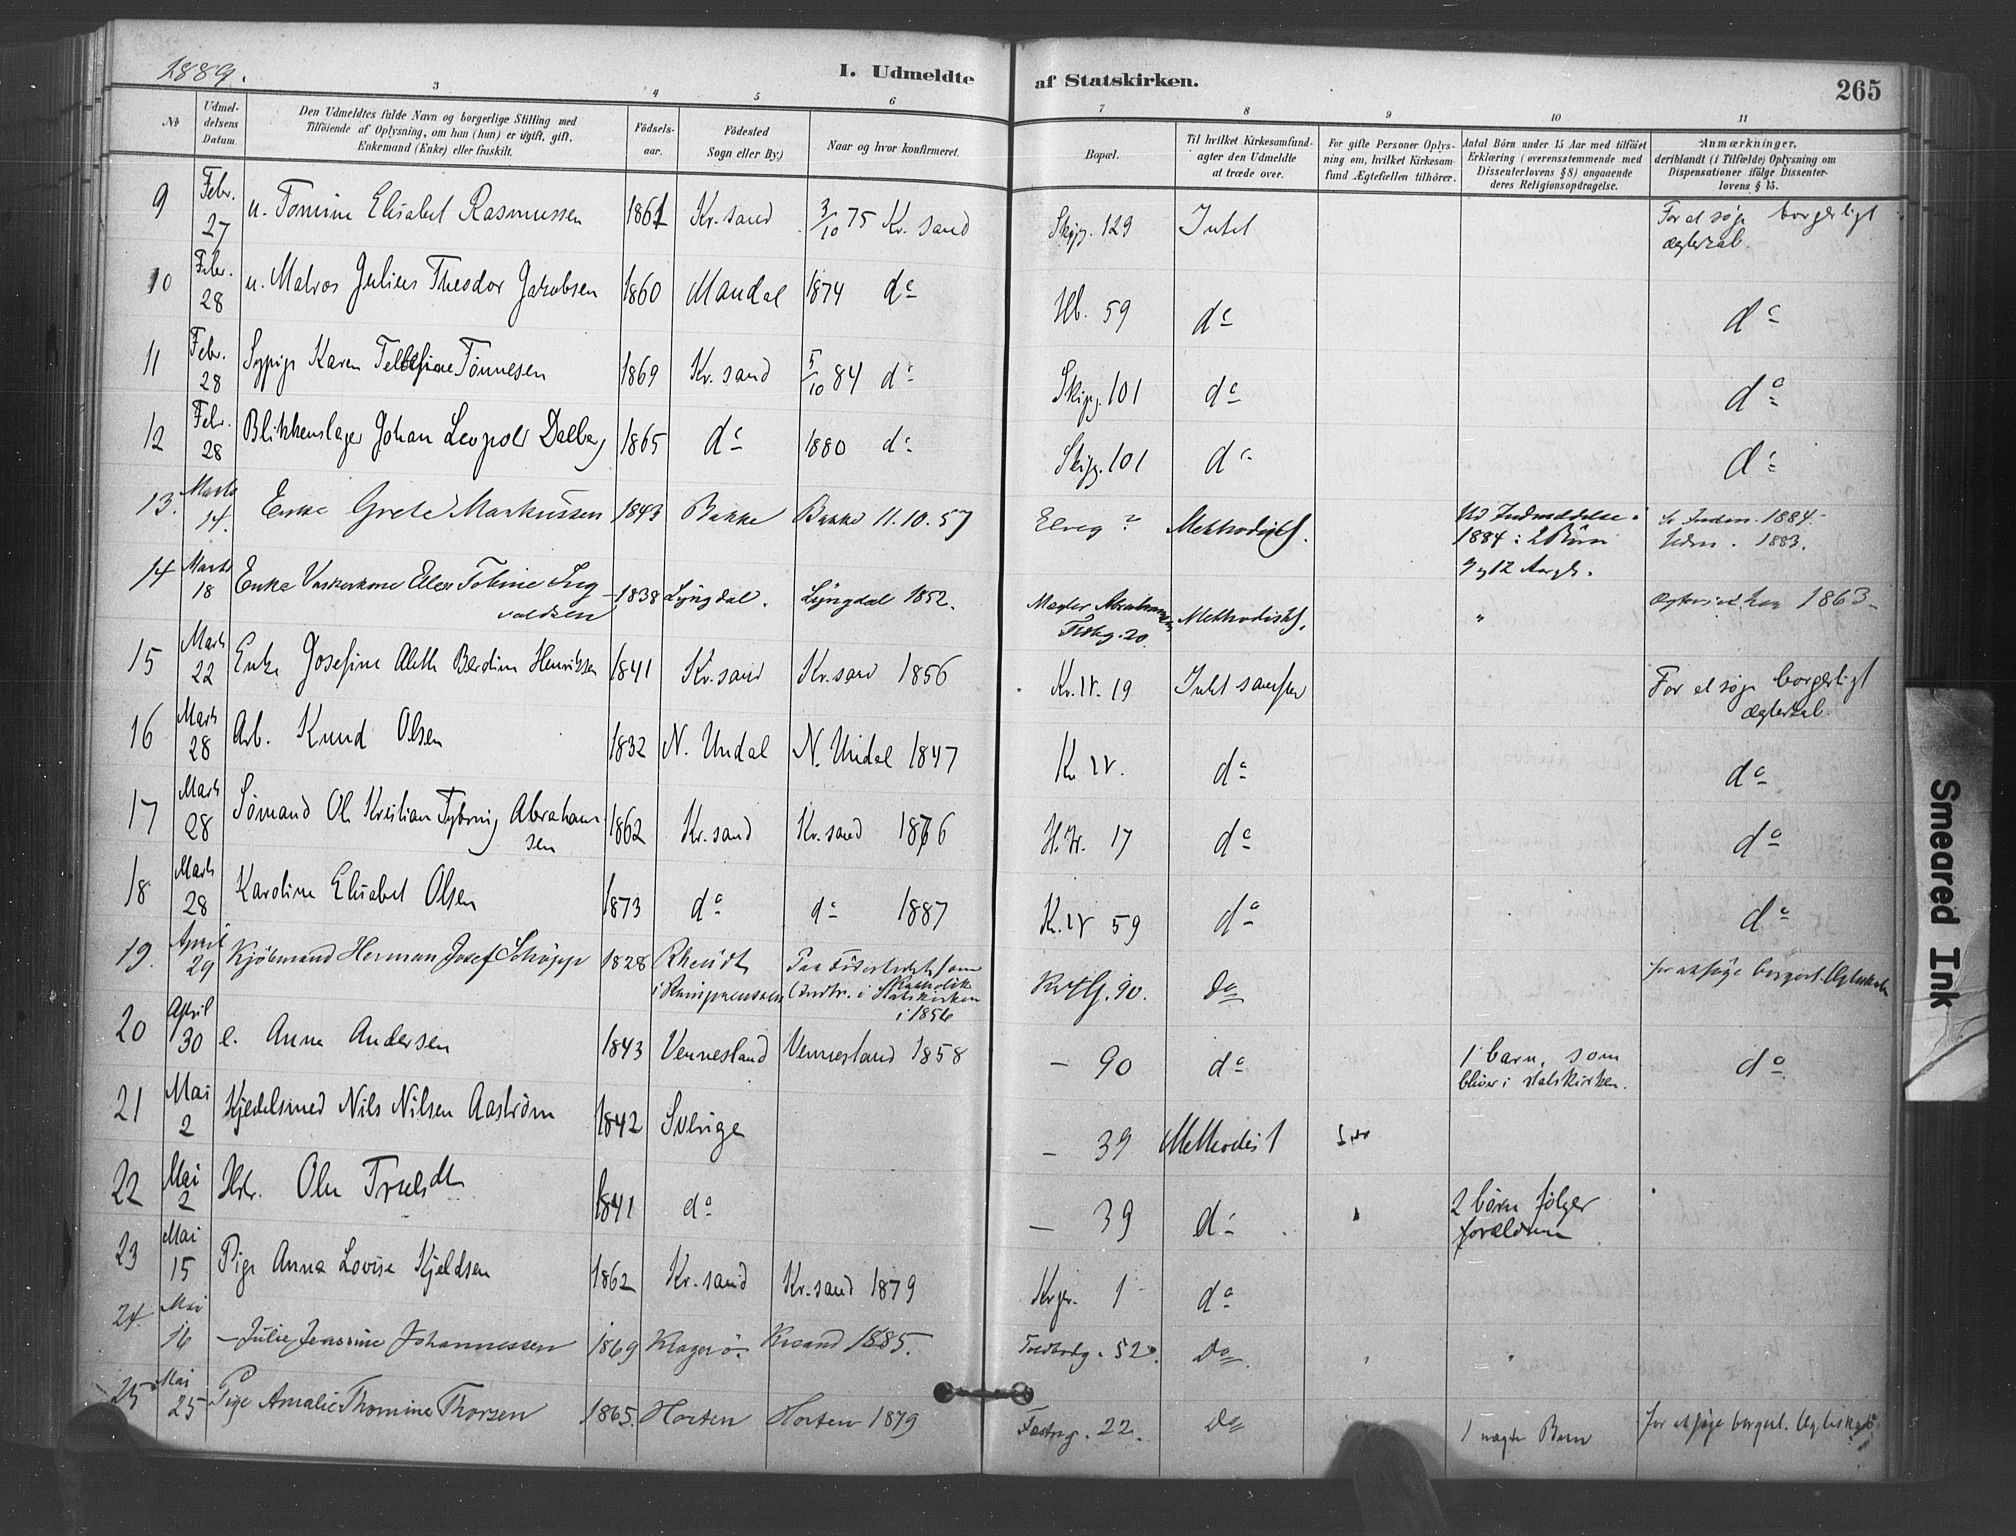 1889.
I. Udmeldte af Statskirken. 265
3 4 5 6 7 8 9 10 11
No
Udmeldelsens Datum.
Den Udmeldtes fulde Navn og borgerlige Stilling med
Tilföiende af Oplysning, om han (hun) er ugift, gift,
Enkemand (Enke) eller fraskilt.
Födselsaar.
Födested
Sogn eller By.)
Naar og hvor konfirmeret.
Bopæl.
Til hvilket Kirkesamfundagter den Udmeldte
at træde over.
For gifte Personer Oplysning om, hvilket Kirkesamfund Ægtefællen tilhörer.
Antal Börn under 15 Aar med tilföiet
Erklæring (overensstemmende med
Dissenterlovens § 8) angaaende
deres Religionsopdragelse.
Anmærkninger,
deriblandt (i Tilfælde) Oplysning om
Dispensationer ifölge Dissenterlovens § 15.
9 Febr. 27 u. Tomine Elisabet Rasmussen 1861 Kr.sand 3/10 75 Kr. sand Skipg. 129 Intet For at søge borgerligt
ægteskab.
10 Febr. 28 u. Matros Julius Theodor Jakobsen 1860 Mandal 1874 do 59 do do
11 Febr. 28 Sypige Karen Tønnesen 1869 Kr. sand 5/10 84 do Skipg. 101 do do
12 Febr. 28 Blikkenslager Johan Leopold Dalberg 1865 do 1880 do Skipg. 101 do do
13. Marts 14. Enke Grete Markussen 1843 Bakke Bakke 11.10.57 Elveg ? Methodistsf. Ved Indmeldelse i
1884: 2 Børn
9 og 12 Aar gl. 1884
1883.
14 Marts 18 Enke Vaskerkone Ellen Tobine Ingvaldsen 1838 Lyngdal. Lyngdal 1852. Mægler Abrahamsen
Festng. 20 Methodistsf. " 1863
15 Marts 22 Enke Josefine Aleth Berdine Henriksen 1841 Kr.sand Kr.sand 1856 Kr. V. 19 Intet samfund For at søge borgerligt
ægteskab.
16 Marts 28 Arb. Knud Olsen 1832 N. Undal N. Undal 1847 Kr. V. do do
17 Marts 28 Sømand Ole Kristian Abrahamsen 1862 Kr. sand Kr. sand 1876 17 do do
18 Marts 28 Karoline Elisabet Olsen 1873 do do 1887 K. V 59 do do
19. April 29 Kjøbmand Herman Josef Schöpp 1828 Rheidt
i Rheinpreussen Paa Fødestedet som
Katholik
(Indtr. i Statskirken
i 1856 90. Do for at søge borgerl. Ægteskab
20 April 30 e. Anna Andersen 1843 Vennesland Vennesland 1858 – 90 do 1 barn, som
bliver i statskirken. do
21 Mai 2 Kjedelsmed Nils Nilsen Aastrøm 1842 Sverige – 39 Methodist
22 Mai 2 Hstr. 1841 do – 39 do 2 børn følger
forældrene
23 Mai 15 Pige Anna Lovise Kjeldsen 1862 Kr. sand Kr. sand 1879 1 do
24. Mai 16 – Julie Jensine Johannessen 1869 Kragerø. Krsand 1885. Toldbodg. 52 Do.
25 Mai 25 Pige Amalie Thomine Thorsen 1865. Horten Horten 1879 Festng. 22. Do 1 uægte Barn for at søge borgerl. Ægteskab
Smeared Ink